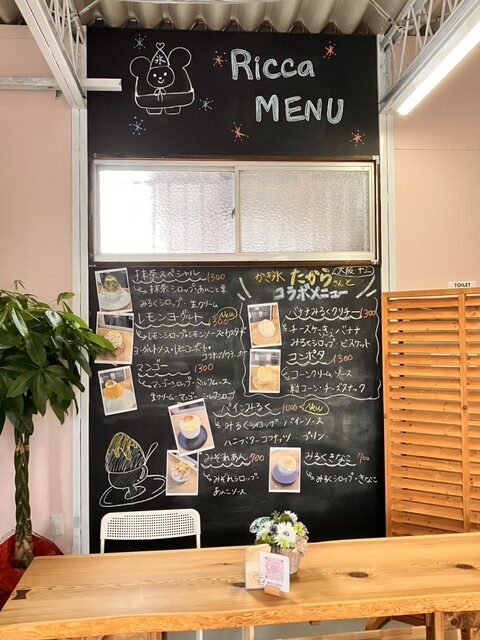 氷
Ricca
MENU
抹茶スペシャル 1300
抹茶シロップ・あんこ
みるくシロップ・生クリーム
レモンヨーグルト 1300 New
レモンシロップ・レモンソース・カスタード
ヨーグルトソース・レモンコンポート・
マンゴー 1300
マンゴーシロップ・ミルクムース
生クリーム・マンゴー・ミルクシロップ
かき氷 たから さんと
大阪 十三
コラボメニュー
バナナみるくクリチー 1300
チーズケーキソース・バナナ
みるくシロップ・ビスケット
コンポタ 1300
コーンクリームソース
粒コーン・チーズスナック
パインみるく 1000 New
みるくシロップ パインソース
ハニーバターココナッツ・プリン
みぞれあん 700
みぞれシロップ・
あんこソース
みるくきなこ 700
みるくシロップ・きなこ
TOILET